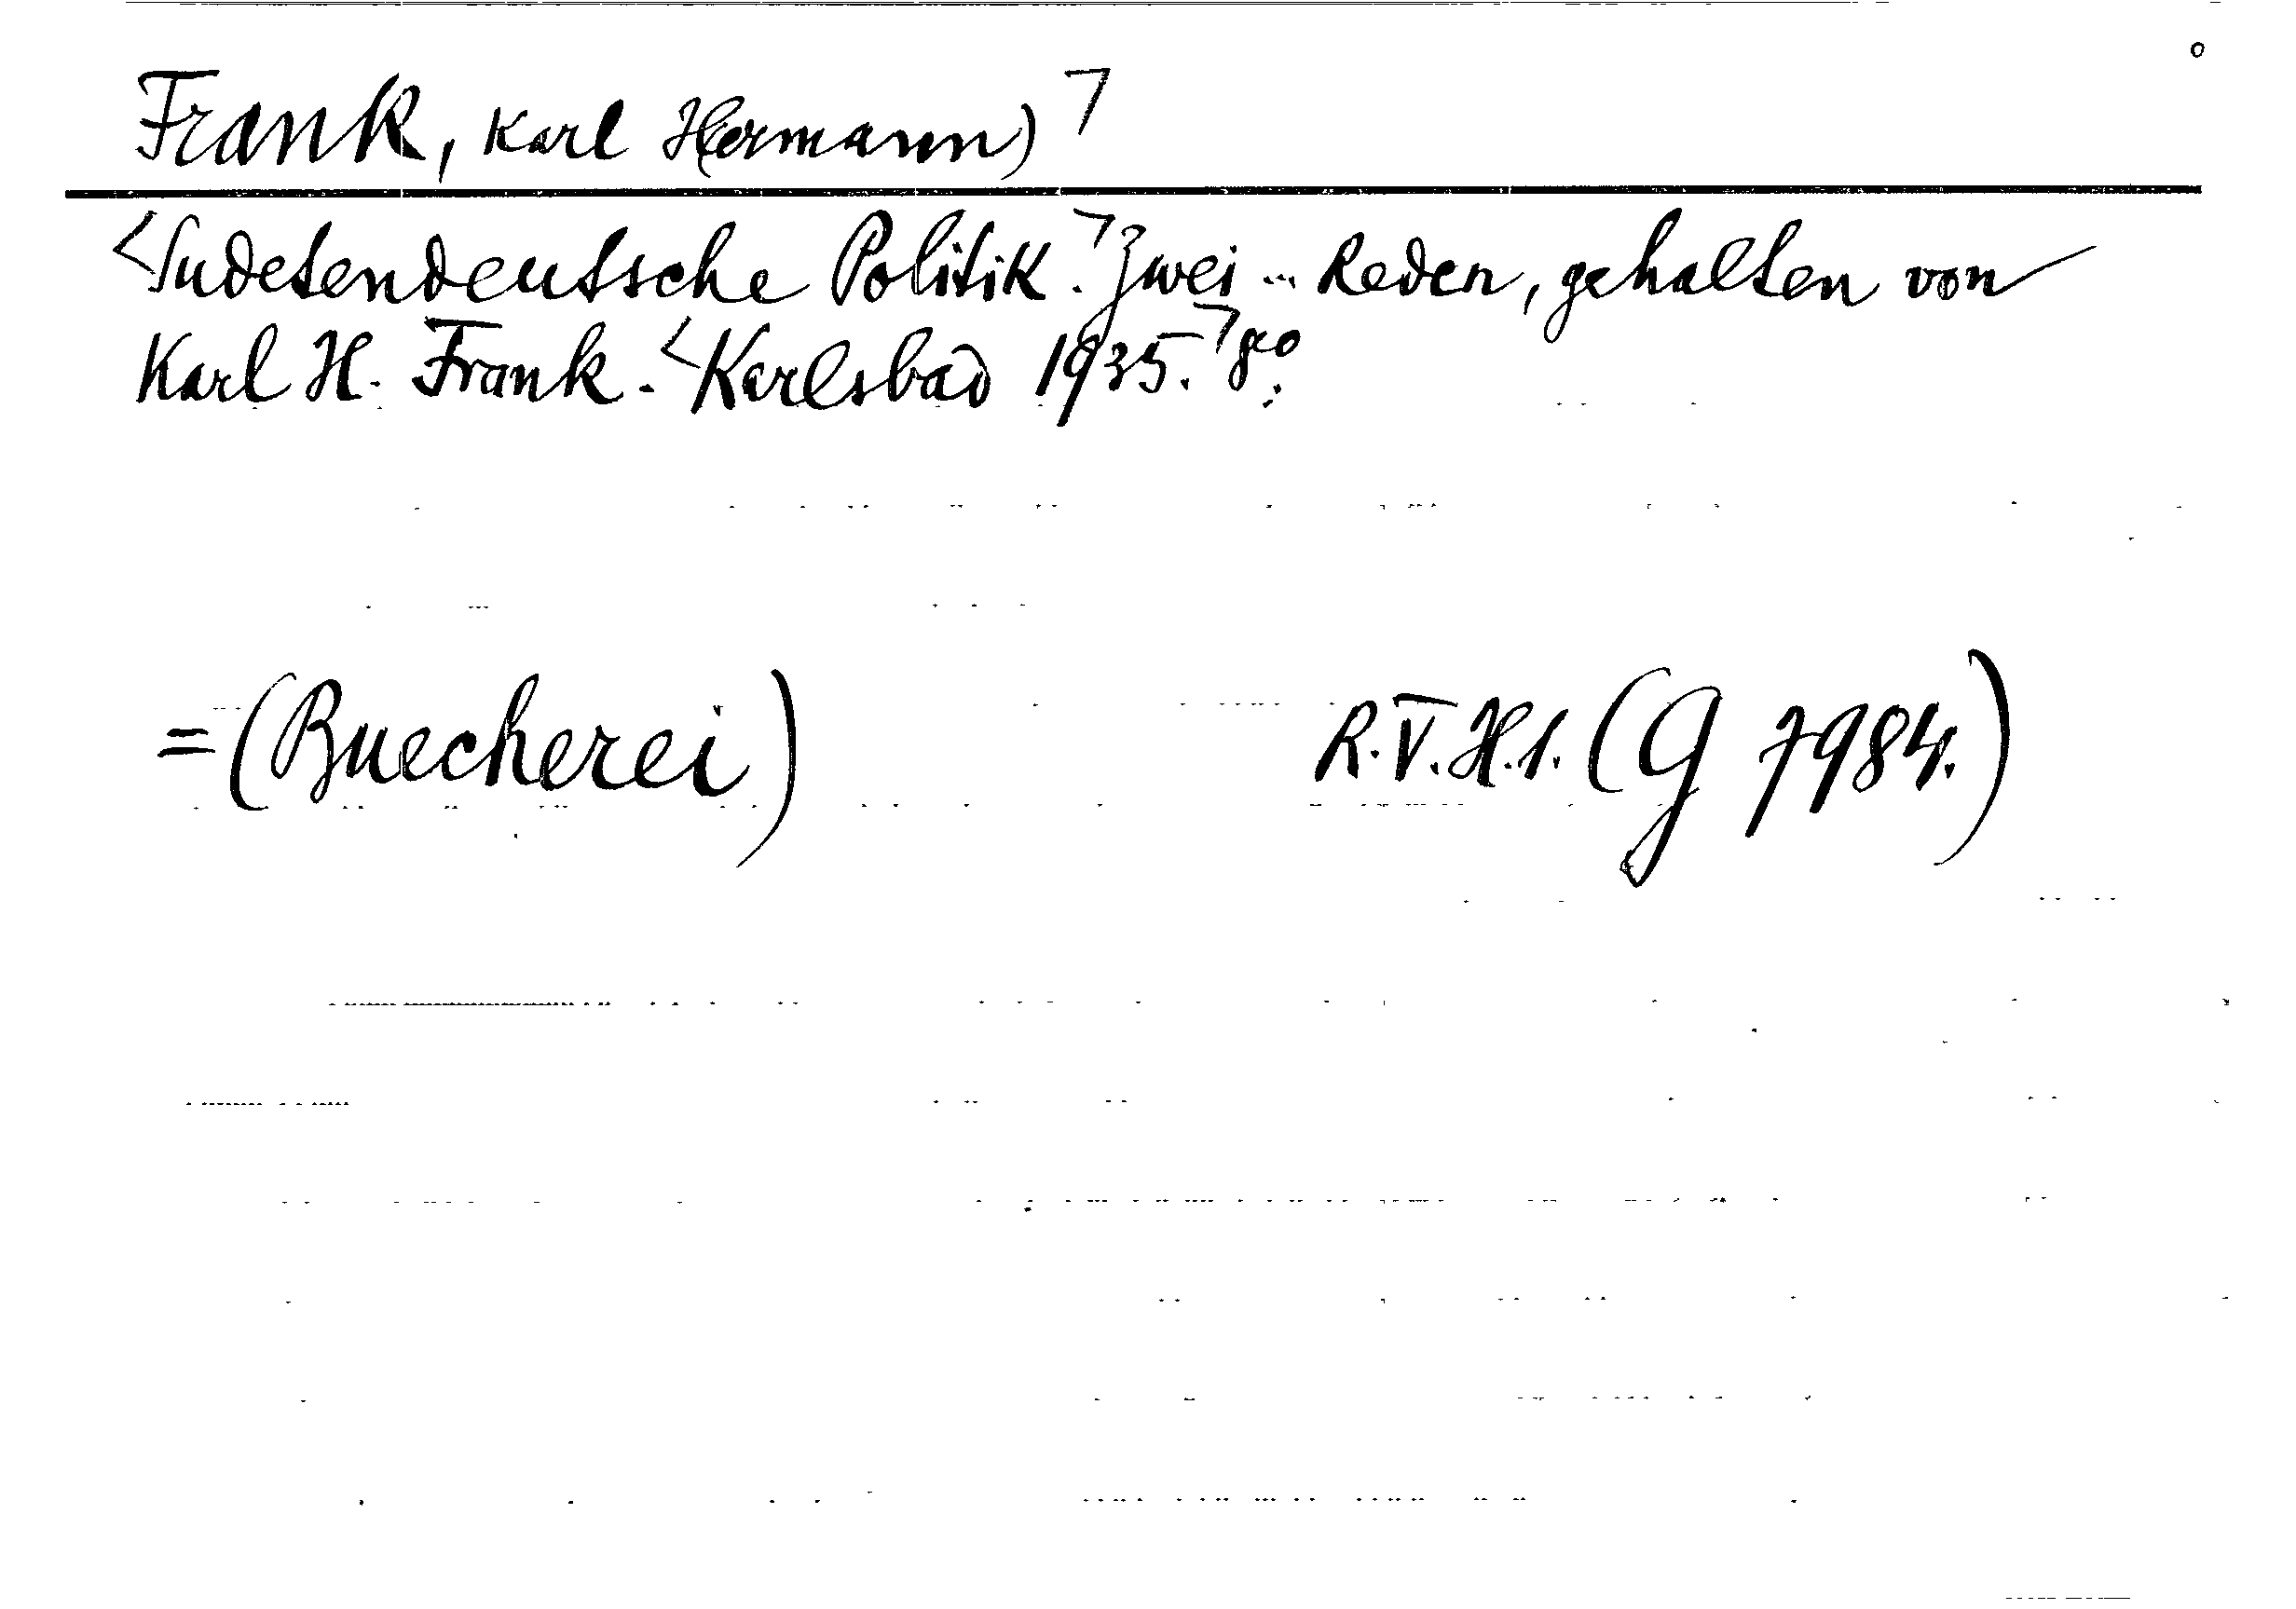 Frank, Karl H(ermann)⌝
<Sudetendeutsche Politik.⌝ Zwei ... Reden, gehalten von
Karl H. Frank. <Karlsbad 1935.⌝ 8°.
=(Buecherei) R.V.H.1. (G 7984.)